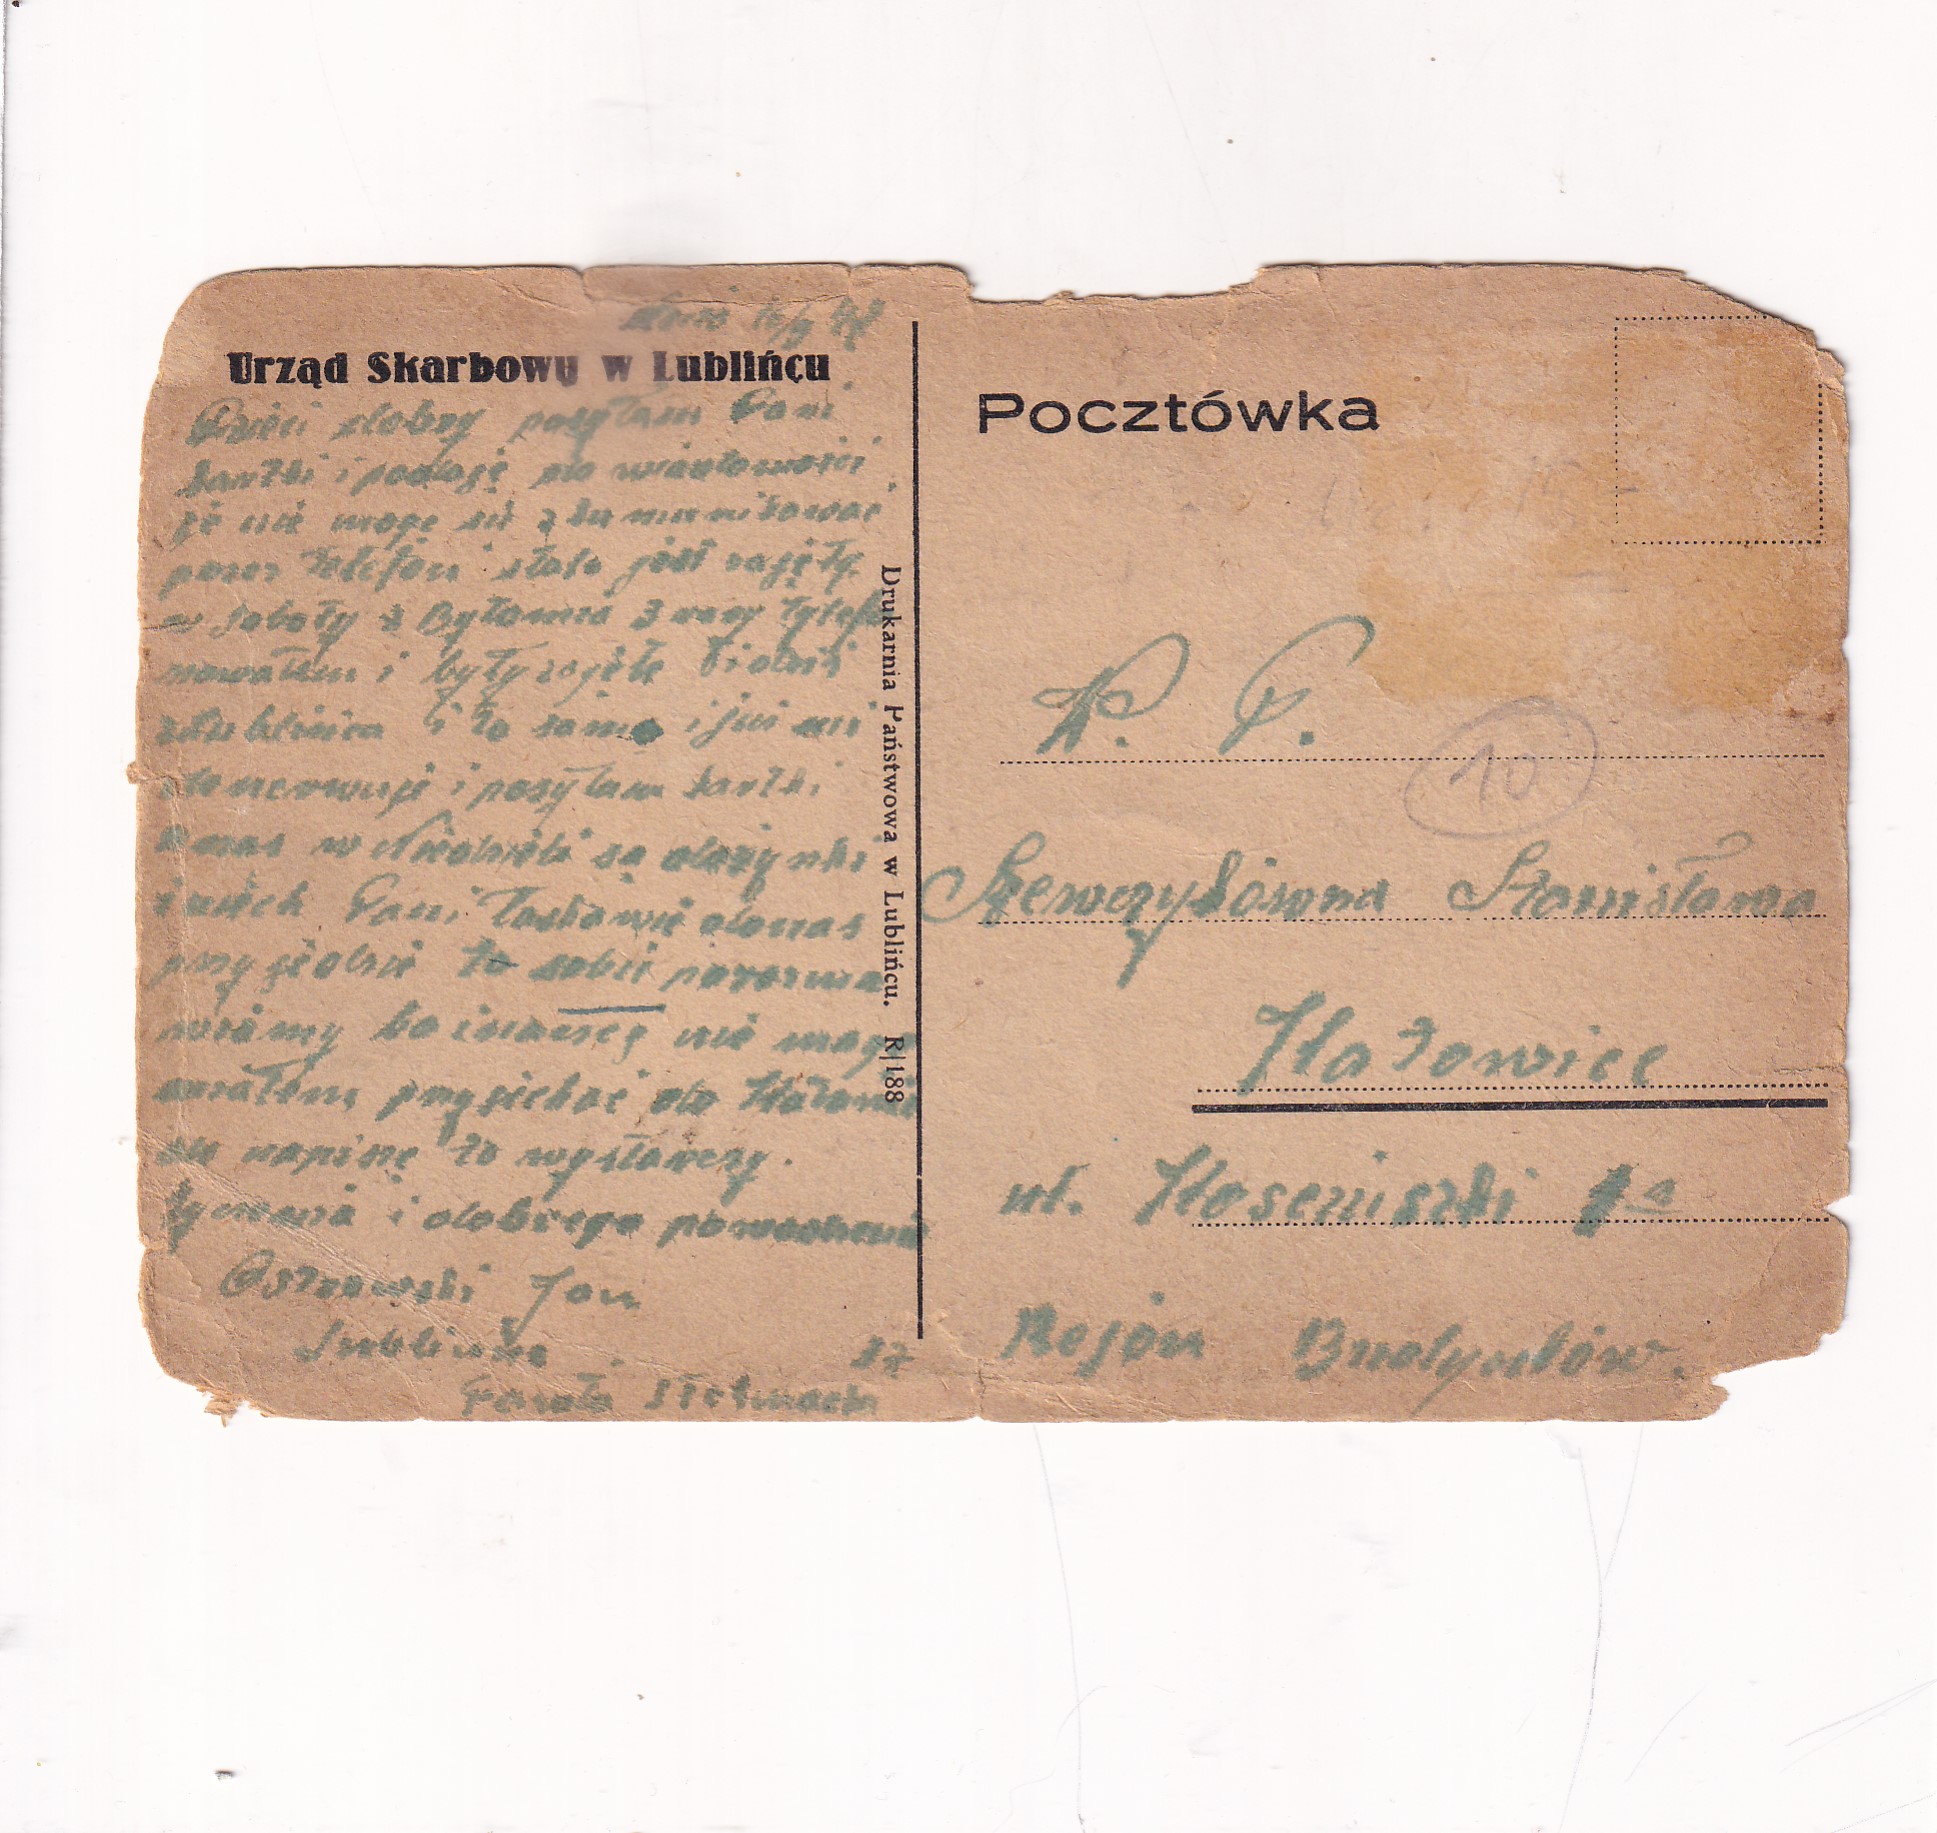 16/9 47
Urząd Skarbowy w Lublińcu
Dzień dobry posyłam Pani
kartki i podaję do wiadomości
że nie mogę się skumunikować
przez telefon stale jest zajęty
w soboty z Bytomia 3 razy tylefo
nowałem i były zajęte
z Lublińca i to samo i już mi
denerwuje i posyłam kartki
u nas w Niedziele są dożynki
i niech Pani łaskawie donas
przyjedzie to sobie porozma
wiamy bo inaczej nie mogę
przyjechać do Katowic
napisze to wystarczy.
i dobrego powodzenia
Ostrowski Jan
Lubliniec
Drukarnia Państwowa w Lublińcu. R/188
Pocztówka
W. P.
10
Szewczykówna Stanisława
Katowice
ul. 1a
Rejon Budynków.